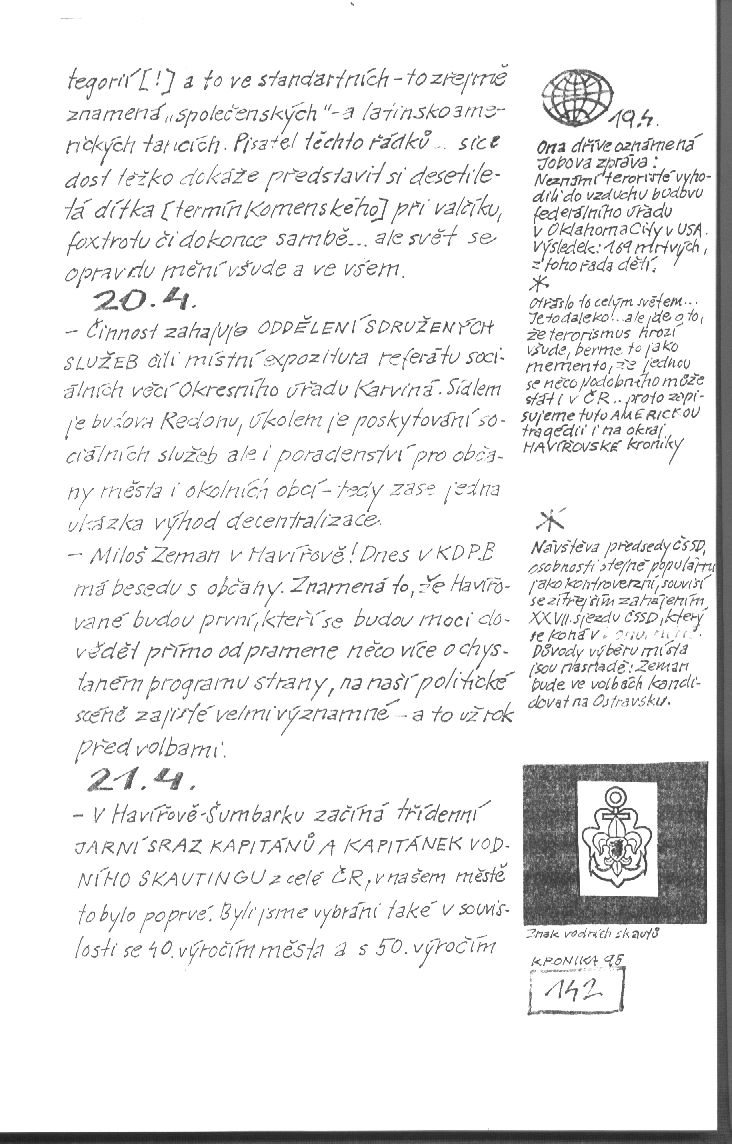 tegorií [!] a to ve standartních - to zřejmě
znamená „společenských“ - a latinskoame-
rických tancích. Pisatel těchto řádků... sice
dost těžko dokáže představit si desetile-
tá dítka [termín Komenského] při valčíku,
foxtrotu či dokonce sambě... ale svět se
opravdu mění všude a ve všem.
20.4.
- Činnost zahajuje ODDĚLENÍ SDRUŽENÝCH
SLUŽEB čili místní expozitura referátu soci-
álních věcí Okresního úřadu Karviná. Sídlem
je budova Redonu, úkolem je poskytování so-
ciálních služeb ale i poradenství pro obča-
ny města i okolních obcí - tedy zase jedna
ukázka výhod decentralizace.
- Miloš Zeman v Havířově! Dnes v KDPB
má besedu s občany. Znamená to, že Havířo-
vané budou první, kteří se budou moci do-
vědět přímo od pramene něco více o chys-
taném programu strany, na naší politické
scéně zajisté velmi významné - a to už rok
před volbami.
21.4.
- V Havířově-Šumbarku začíná třídenní
JARNÍ SRAZ KAPITÁNŮ A KAPITÁNEK VOD-
NÍHO SKAUTINGU z celé ČR, v našem městě
to bylo poprvé. Byli jsme vybráni také v souvis-
losti se 40. výročím města a s 50. výročím
19.4.
Ona dříve oznámená
Jobova zpráva:
Neznámí teroristé vyho-
dili do vzduchu budovu
federálního úřadu
v Oklahoma City v USA.
Výsledek: 169 mrtvých,
z toho řada dětí.
*
Otřáslo to celým světem...
Je to daleko!.. ale jde o to,
že terorismus hrozí
všude, berme to jako
memento, že jednou
se něco podobného může
stát i v ČR... proto zapi-
sujeme tuto AMERICKOU
tragédii i na okraj
HAVÍŘOVSKÉ kroniky
*
Návštěva předsedy ČSSD,
osobnosti stejně populární
jako kontroverzní, souvisí
se zítřejším zahájením
XXVII. sjezdu ČSSD, který
se koná v
Důvody výběru místa
jsou nasnadě: Zeman
bude ve volbách kandi-
dovat na Ostravsku.
Znak vodních skautů
KRONIKA 95
142